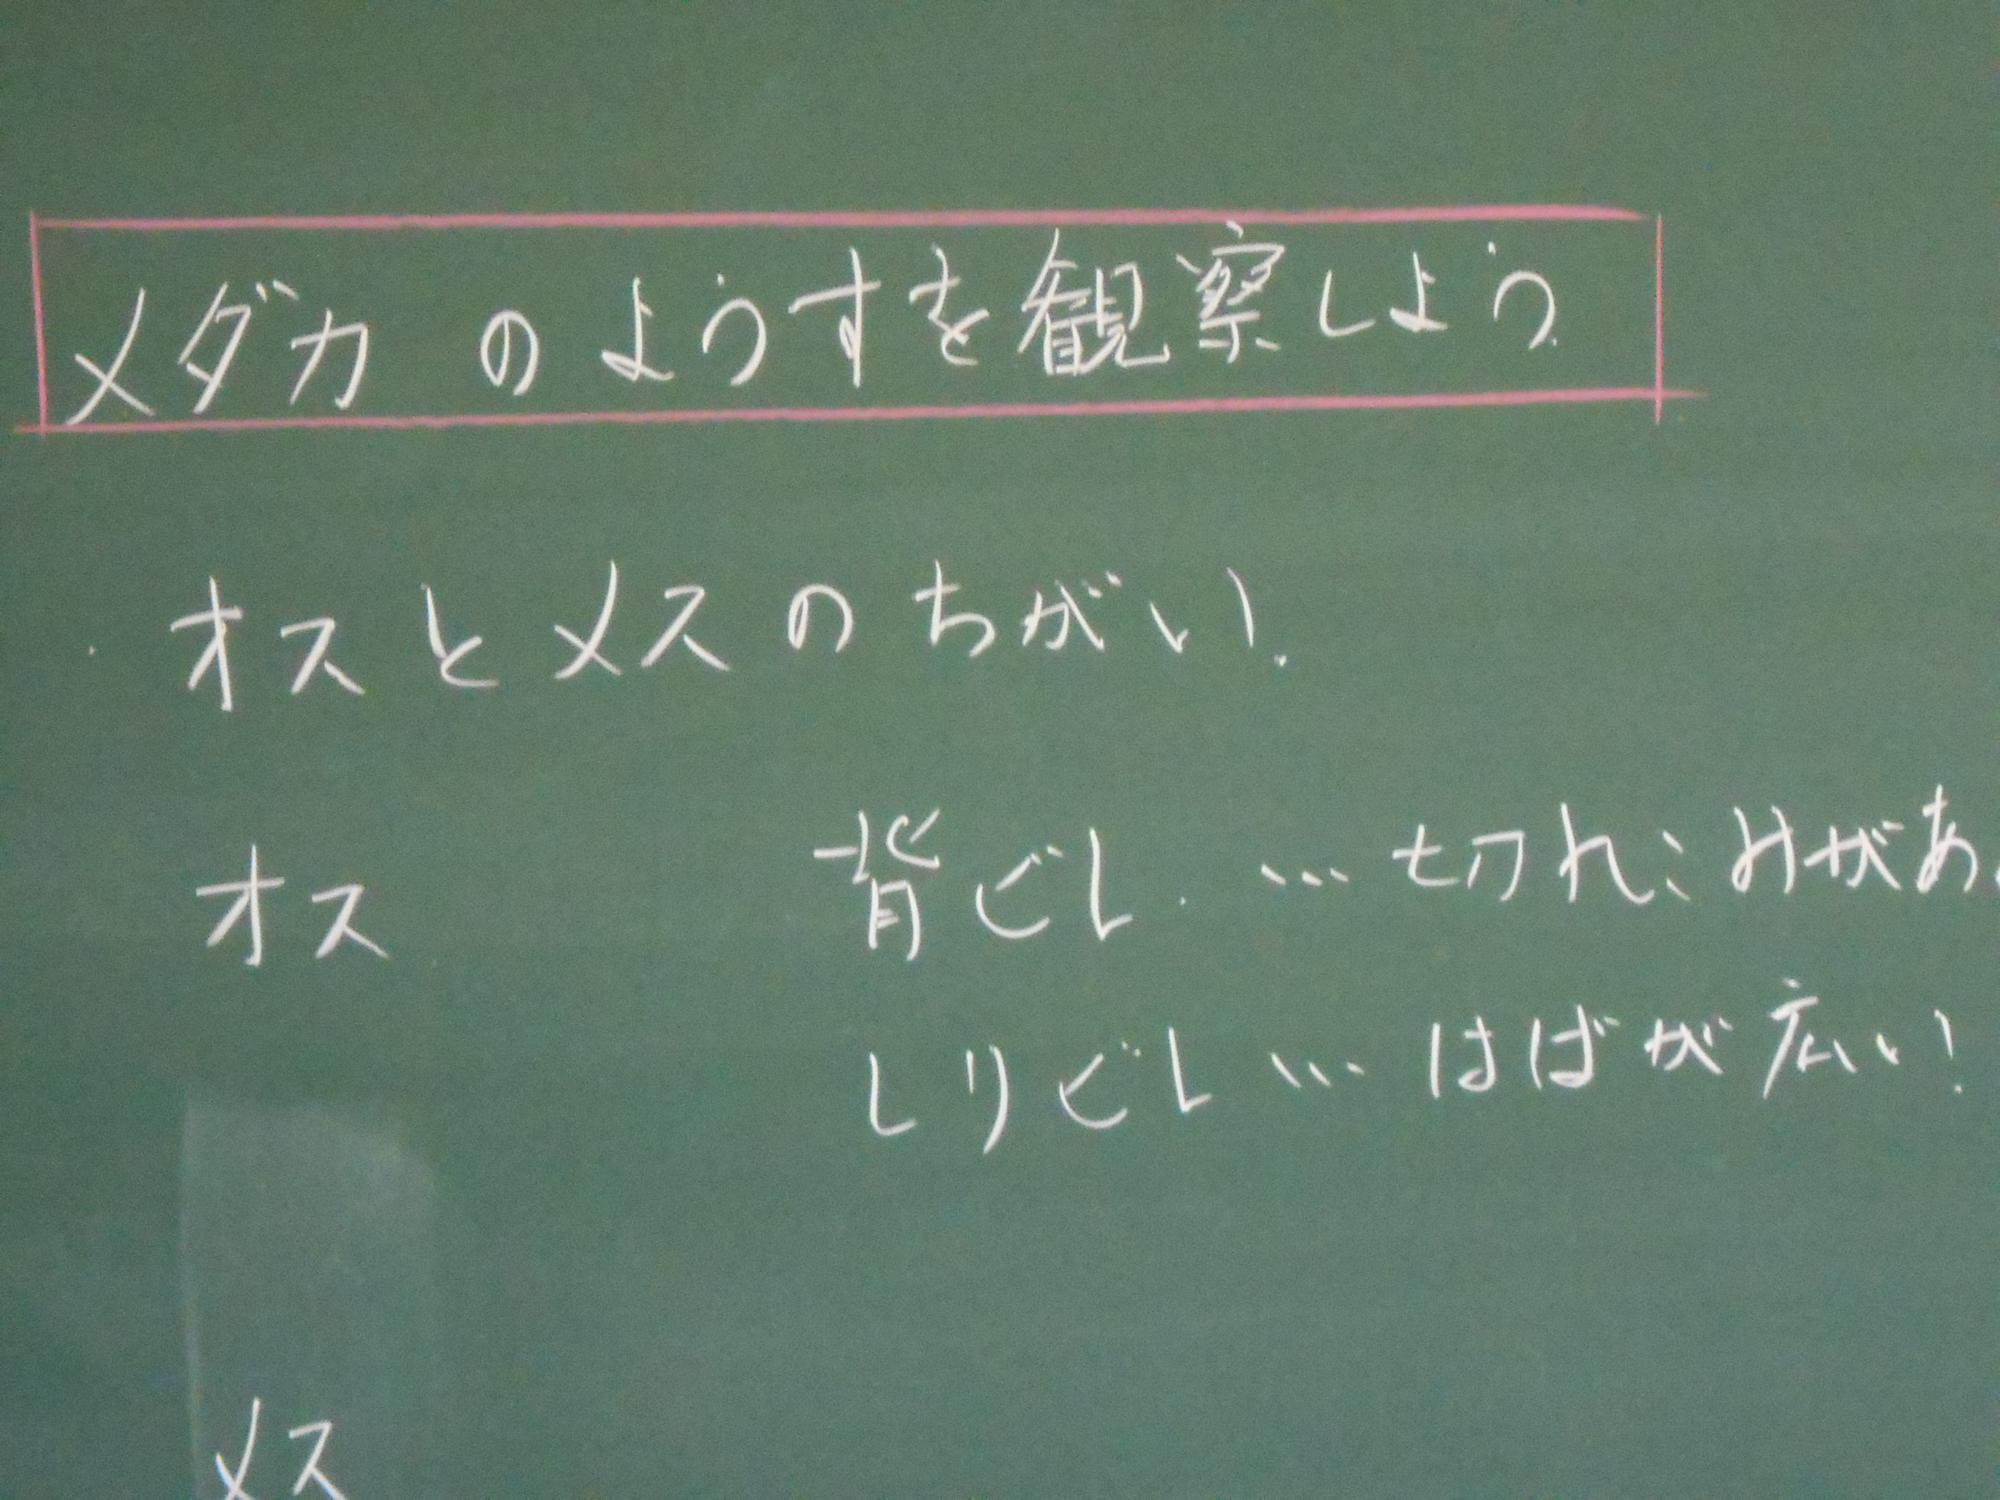 メダカのようすを観察しよう
オスとメスのちがい
オス 背びれ…切れこみがあ
しりびれ…はばが広い
メス